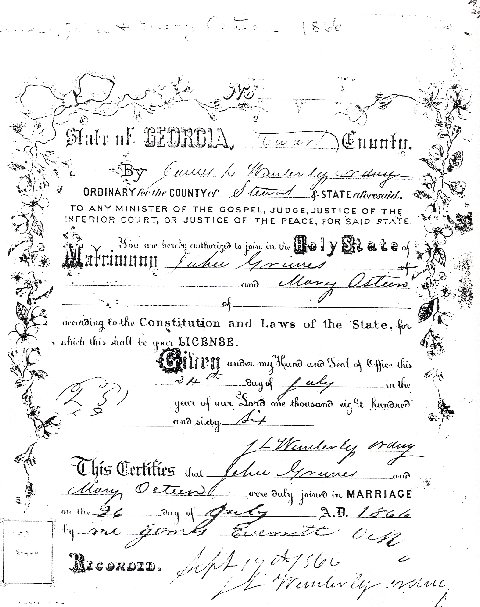 1866
State of GEORGIA, County.
By James L Wimberly Ordy
ORDINARY for the COUNTY of Stewart & STATE aforesaid.
TO ANY MINISTER OF THE GOSPEL, JUDGE, JUSTICE OF THE
INFERIOR COURT, OR JUSTICE OF THE PEACE, FOR SAID STATE.
You are hereby authorized to join in the Holy State of
Matrimony John Graves of
and Mary Osteen
of
according to the Constitution and Laws of the State, for
which this shall be your LICENSE.
Given under my Hand and Seal of Office this
24th day of July in the
year of our Lord one thousand eight hundred
and sixty Six
J L Wimberly Ordy
This Certifies that John Graves and
Mary Osteen were duly joined in MARRIAGE
on the 26 day of July A.D. 1866
by me James Everett
RECORDED. Sept 17th 1866
J L Wimberly Ordny